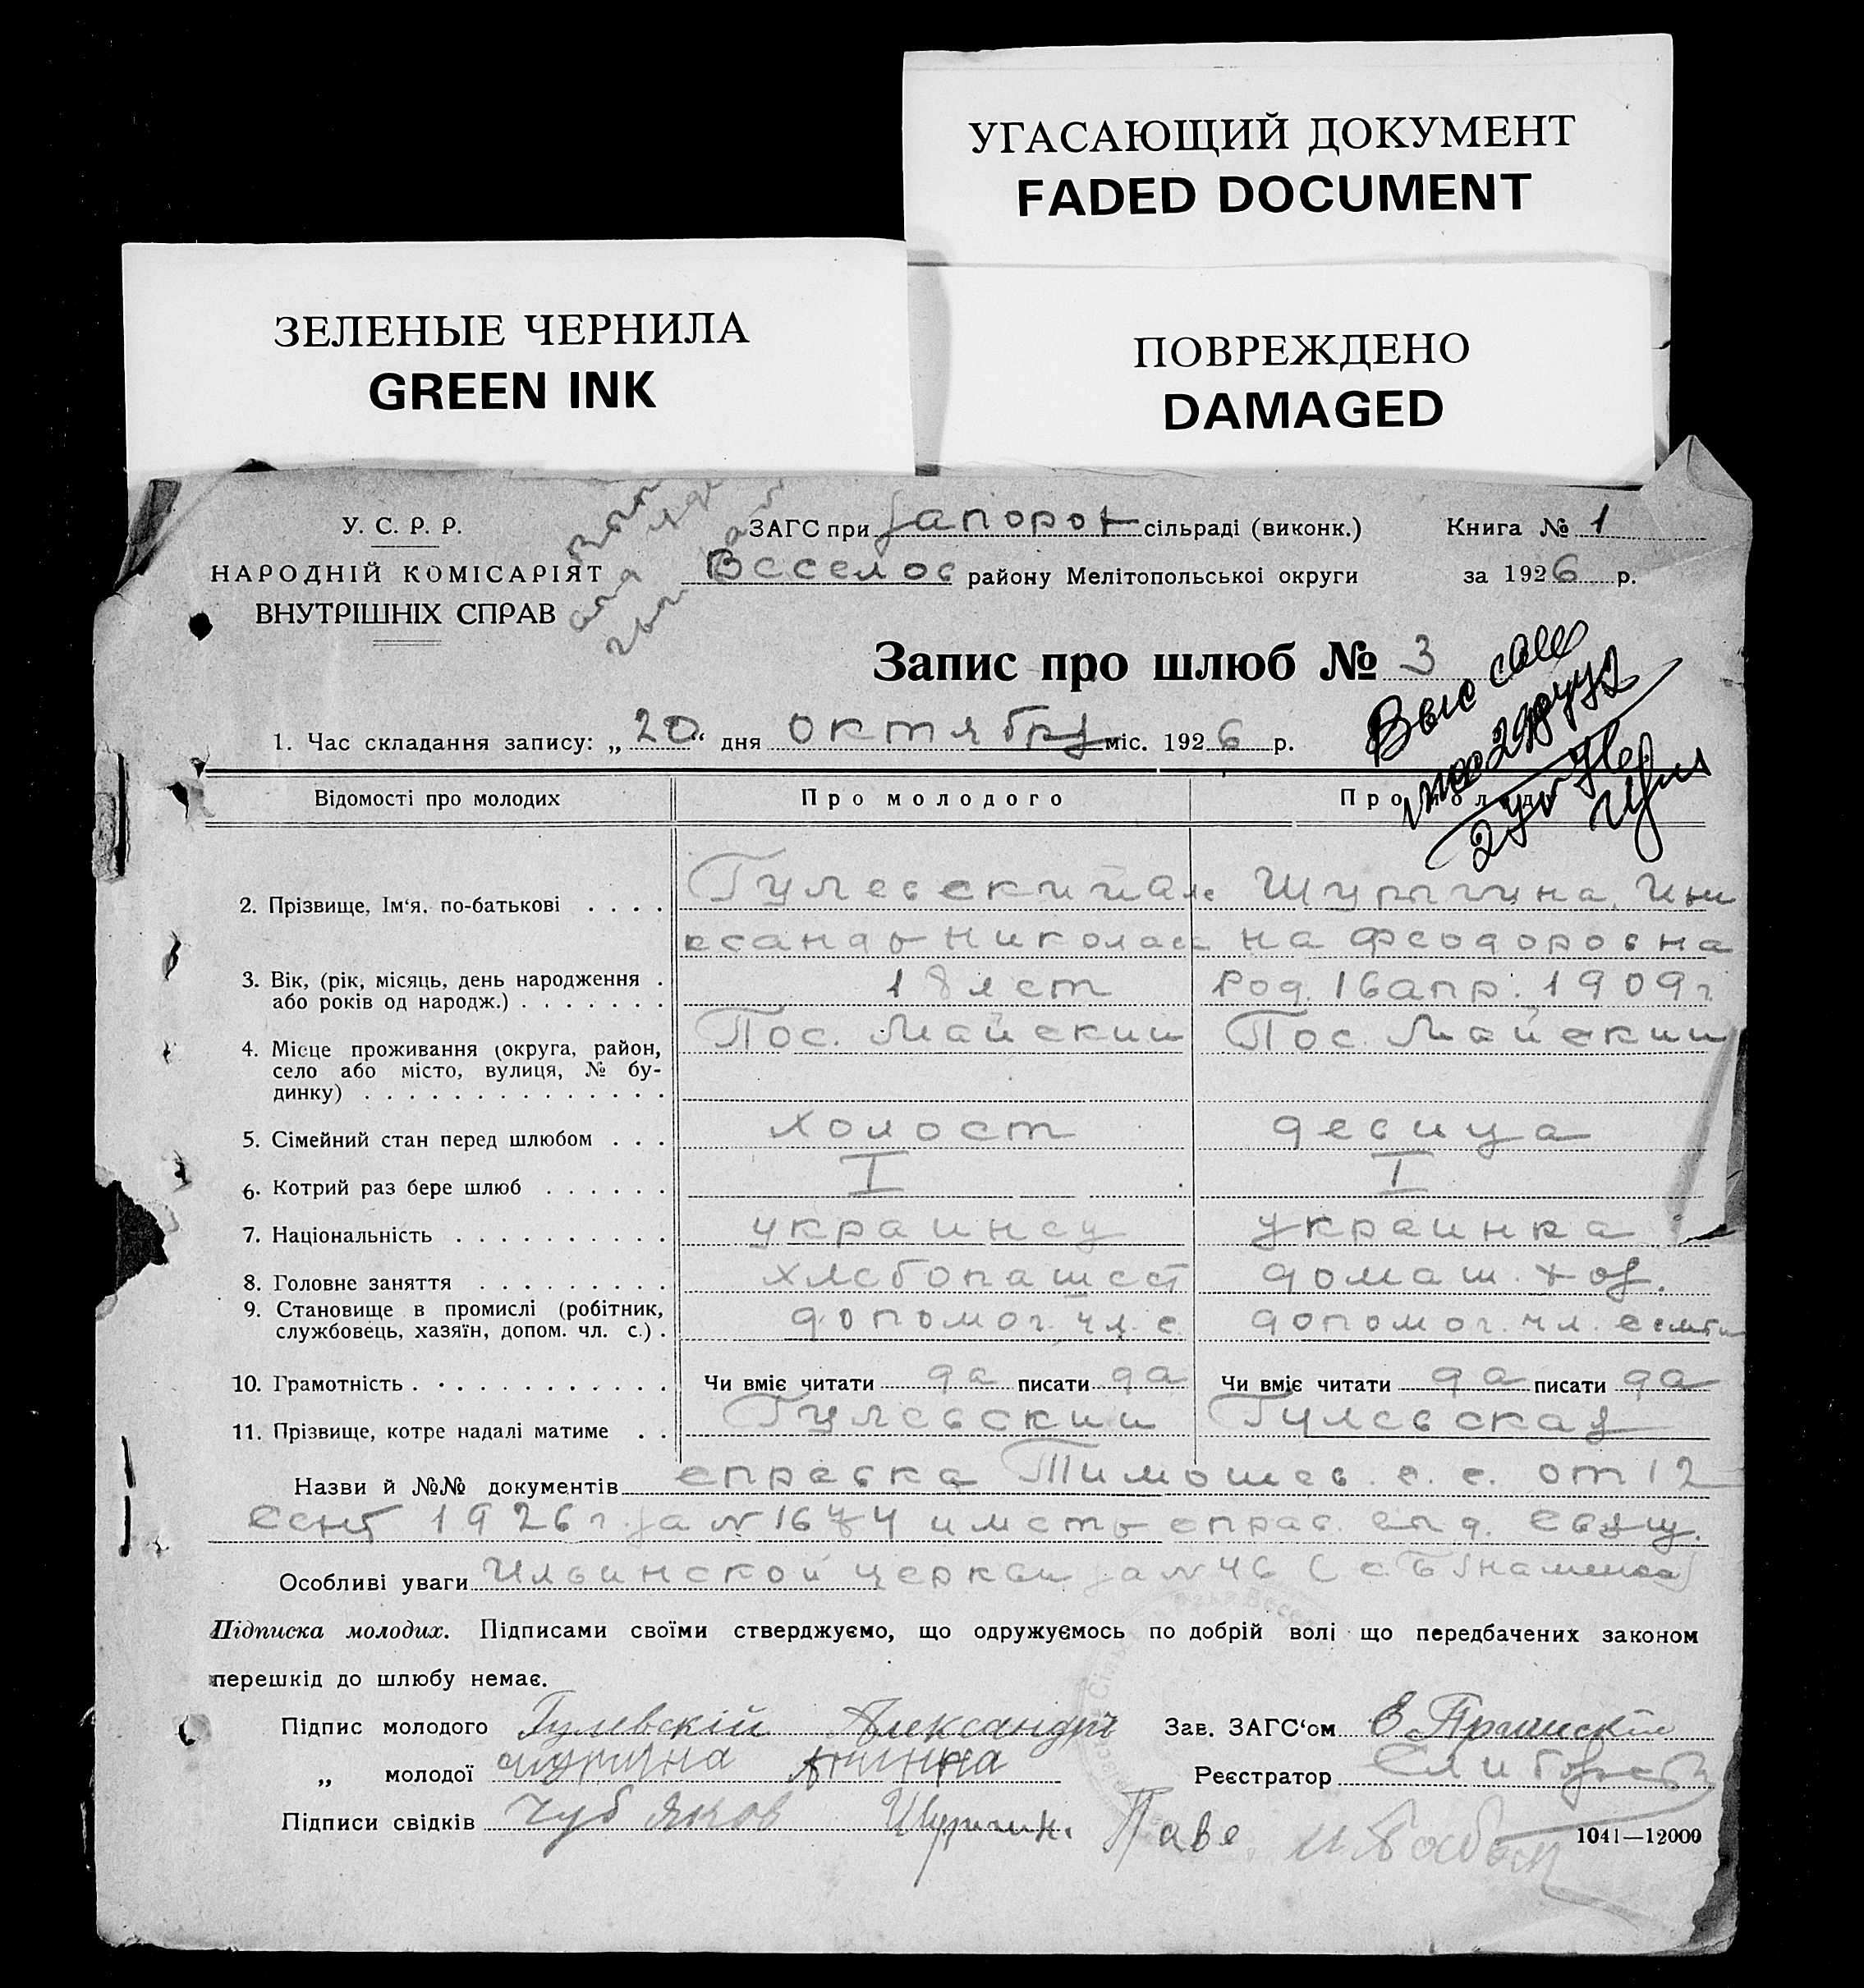 УГАСАЮЩИЙ ДОКУМЕНТ
FADED DOCUMENT
ЗЕЛЕНЫЕ ЧЕРНИЛА
GREEN INK
ПОВРЕЖДЕНО
DAMAGED
У. С. Р. Р.
НАРОДНІЙ КОМІСАРІЯТ
ВНУТРІШНІХ СПРАВ
ЗАГС при Запорож сільраді (виконк.)
Веселов району Мелітопольської округи
Книга № 1
за 1926 р.
Запис про шлюб № 3
1. Час складання запису: „20“ дня октября міс. 1926 р.
Відомості про молодих Про молодого Про молоду
2. Прізвище, Ім‘я, по-батькові . . . . Гулевский Але Шурыгина Ири
ксандр Николаев на Феодоровна
3. Вік, (рік, місяць, день народження . або років од народж.) . . . . . . . 18 лет Род. 16 апр. 1909 г
4. Місце проживання (округа, район, село або місто, вулиця, № будинку) . . . . . . . . . . . . . . Пос. Майский Пос. Майский
5. Сімейний стан перед шлюбом . . . холост девица
6. Котрий раз бере шлюб . . . . . . I I
7. Національність . . . . . . . . . . украинец украинка
8. Головне заняття . . . . . . . . . хлебопашест домаш. хоз.
9. Становище в промислі (робітник, службовець, хазяїн, допом. чл. с.) . допомог. чл. с. допомог. чл. семьи
10. Грамотність . . . . . . . . . . . . Чи вміє читати да писати да Чи вміє читати да писати да
11. Прізвище, котре надалі матиме . . Гулевский Гулевская
Назви й №№ документів справка Тимошев. с. с. от 12
сент 1926 г. за № 1674 и справ.
Особливі уваги Ильинской церкви за № 46 (с. Б Знаменка)
Підписка молодих. Підписами своїми стверджуємо, що одружуємось по добрій волі що передбачених законом
перешкід до шлюбу немає.
Підпис молодого Гулевскій Александръ Зав. ЗАГС‘ом Е.
„ молодої Шуригина Реєстратор
Підписи свідків Чуб Яков Шуригин Паве
1041—12000